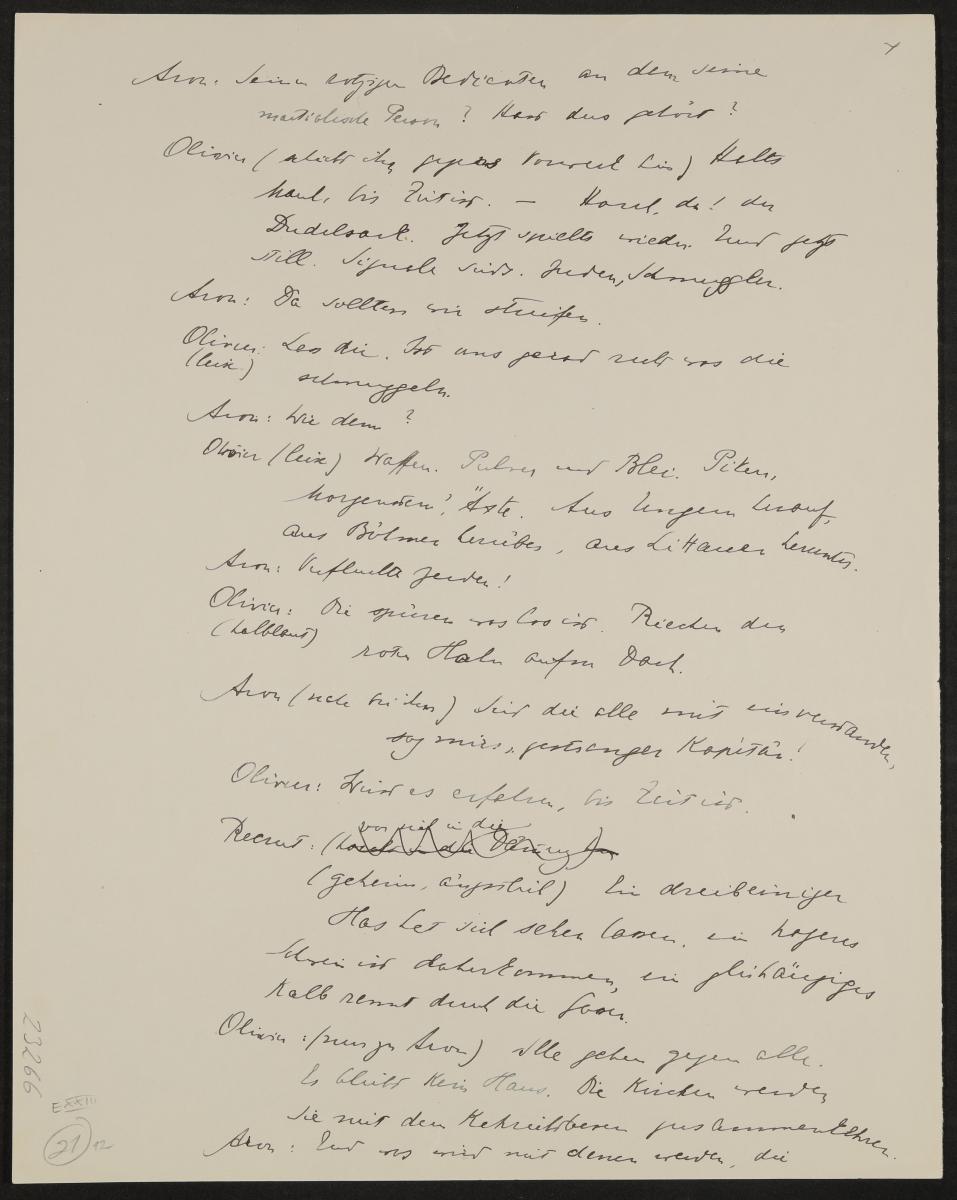 Aron: Seinen rotzigen Bedienten an dem seine
martialische Person? Hast dus gehört?
Olivier (ihn gegens hin) Halts
Maul, bis Zeit ist. — Horch, da! der
Dudelsack. Jetzt spielts wieder. Und jetzt
still. Signale sinds. Juden, Schmuggler.
Aron: Da sollten wir streifen.
Olivier: Lass die. Ist uns gerad recht was die
(leise) schmuggeln.
Aron: Wie denn?
Olivier (leise) Waffen. Pulver und Blei. Piken,
Morgenstern, Äxte. Aus Ungarn herauf,
aus Böhmen herüber, aus Littauen herunter.
Aron: Verfluchte Juden!
Olivier: Die spüren was los ist. Riechen den
(halblaut) roten Hahn aufm Dach.
Aron (nah bei ihm) Sind die alle mit einverstanden,
sag mirs, gestrenger Kapitän!
Olivier: Wirst es erfahren, bis Zeit ist.
Recrut: (
(geheim, ängstlich) Ein dreibeiniger
Has hat sich sehen lassen, ein
Schwein ist daherkommen, ein glühäugiges
Kalb rennt durch die Gassen.
Olivier: (nur zu Aron) Alle gehen gegen alle.
Es bleibt kein Haus. Die Kirchen werden
sie mit dem Kehrichtbesen zusammenkehren.
Aron: Und was wird mit denen werden, die
23266
EXXIII
21 12